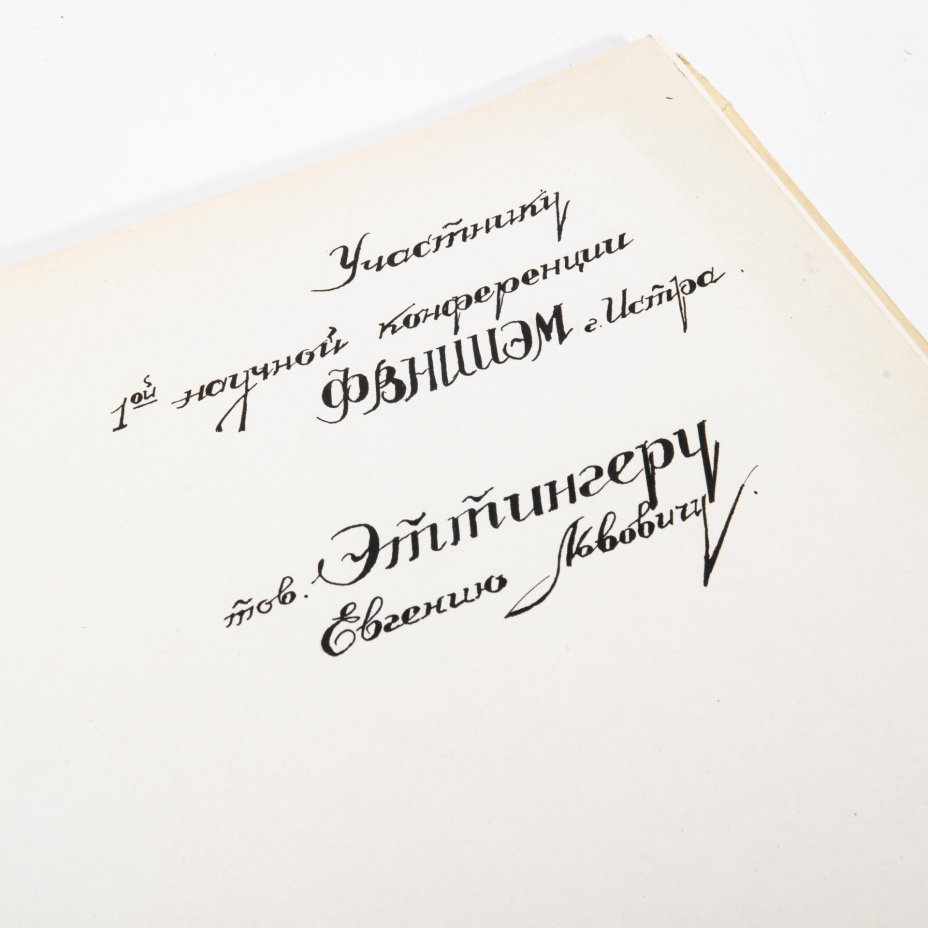 Участнику
1ой научной конференции
ФВНИИЭМ г. Истра.
тов. Эттингеру
Евгению Львовичу.